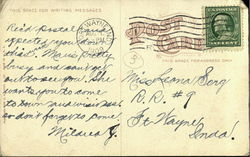 THIS SPACE FOR WRITING MESSAGES
Rec'd postal and
expected you down
that. Ma is pretty
busy and can't get
out to see you. She
wants you to come
to town and visit us
so don't forget to come.
Mildred G.
WAYNE
THIS SPACE FOR ADDRESS ONLY
Miss Leona Berg
R.R. #9
Ft Wayne
Inda!